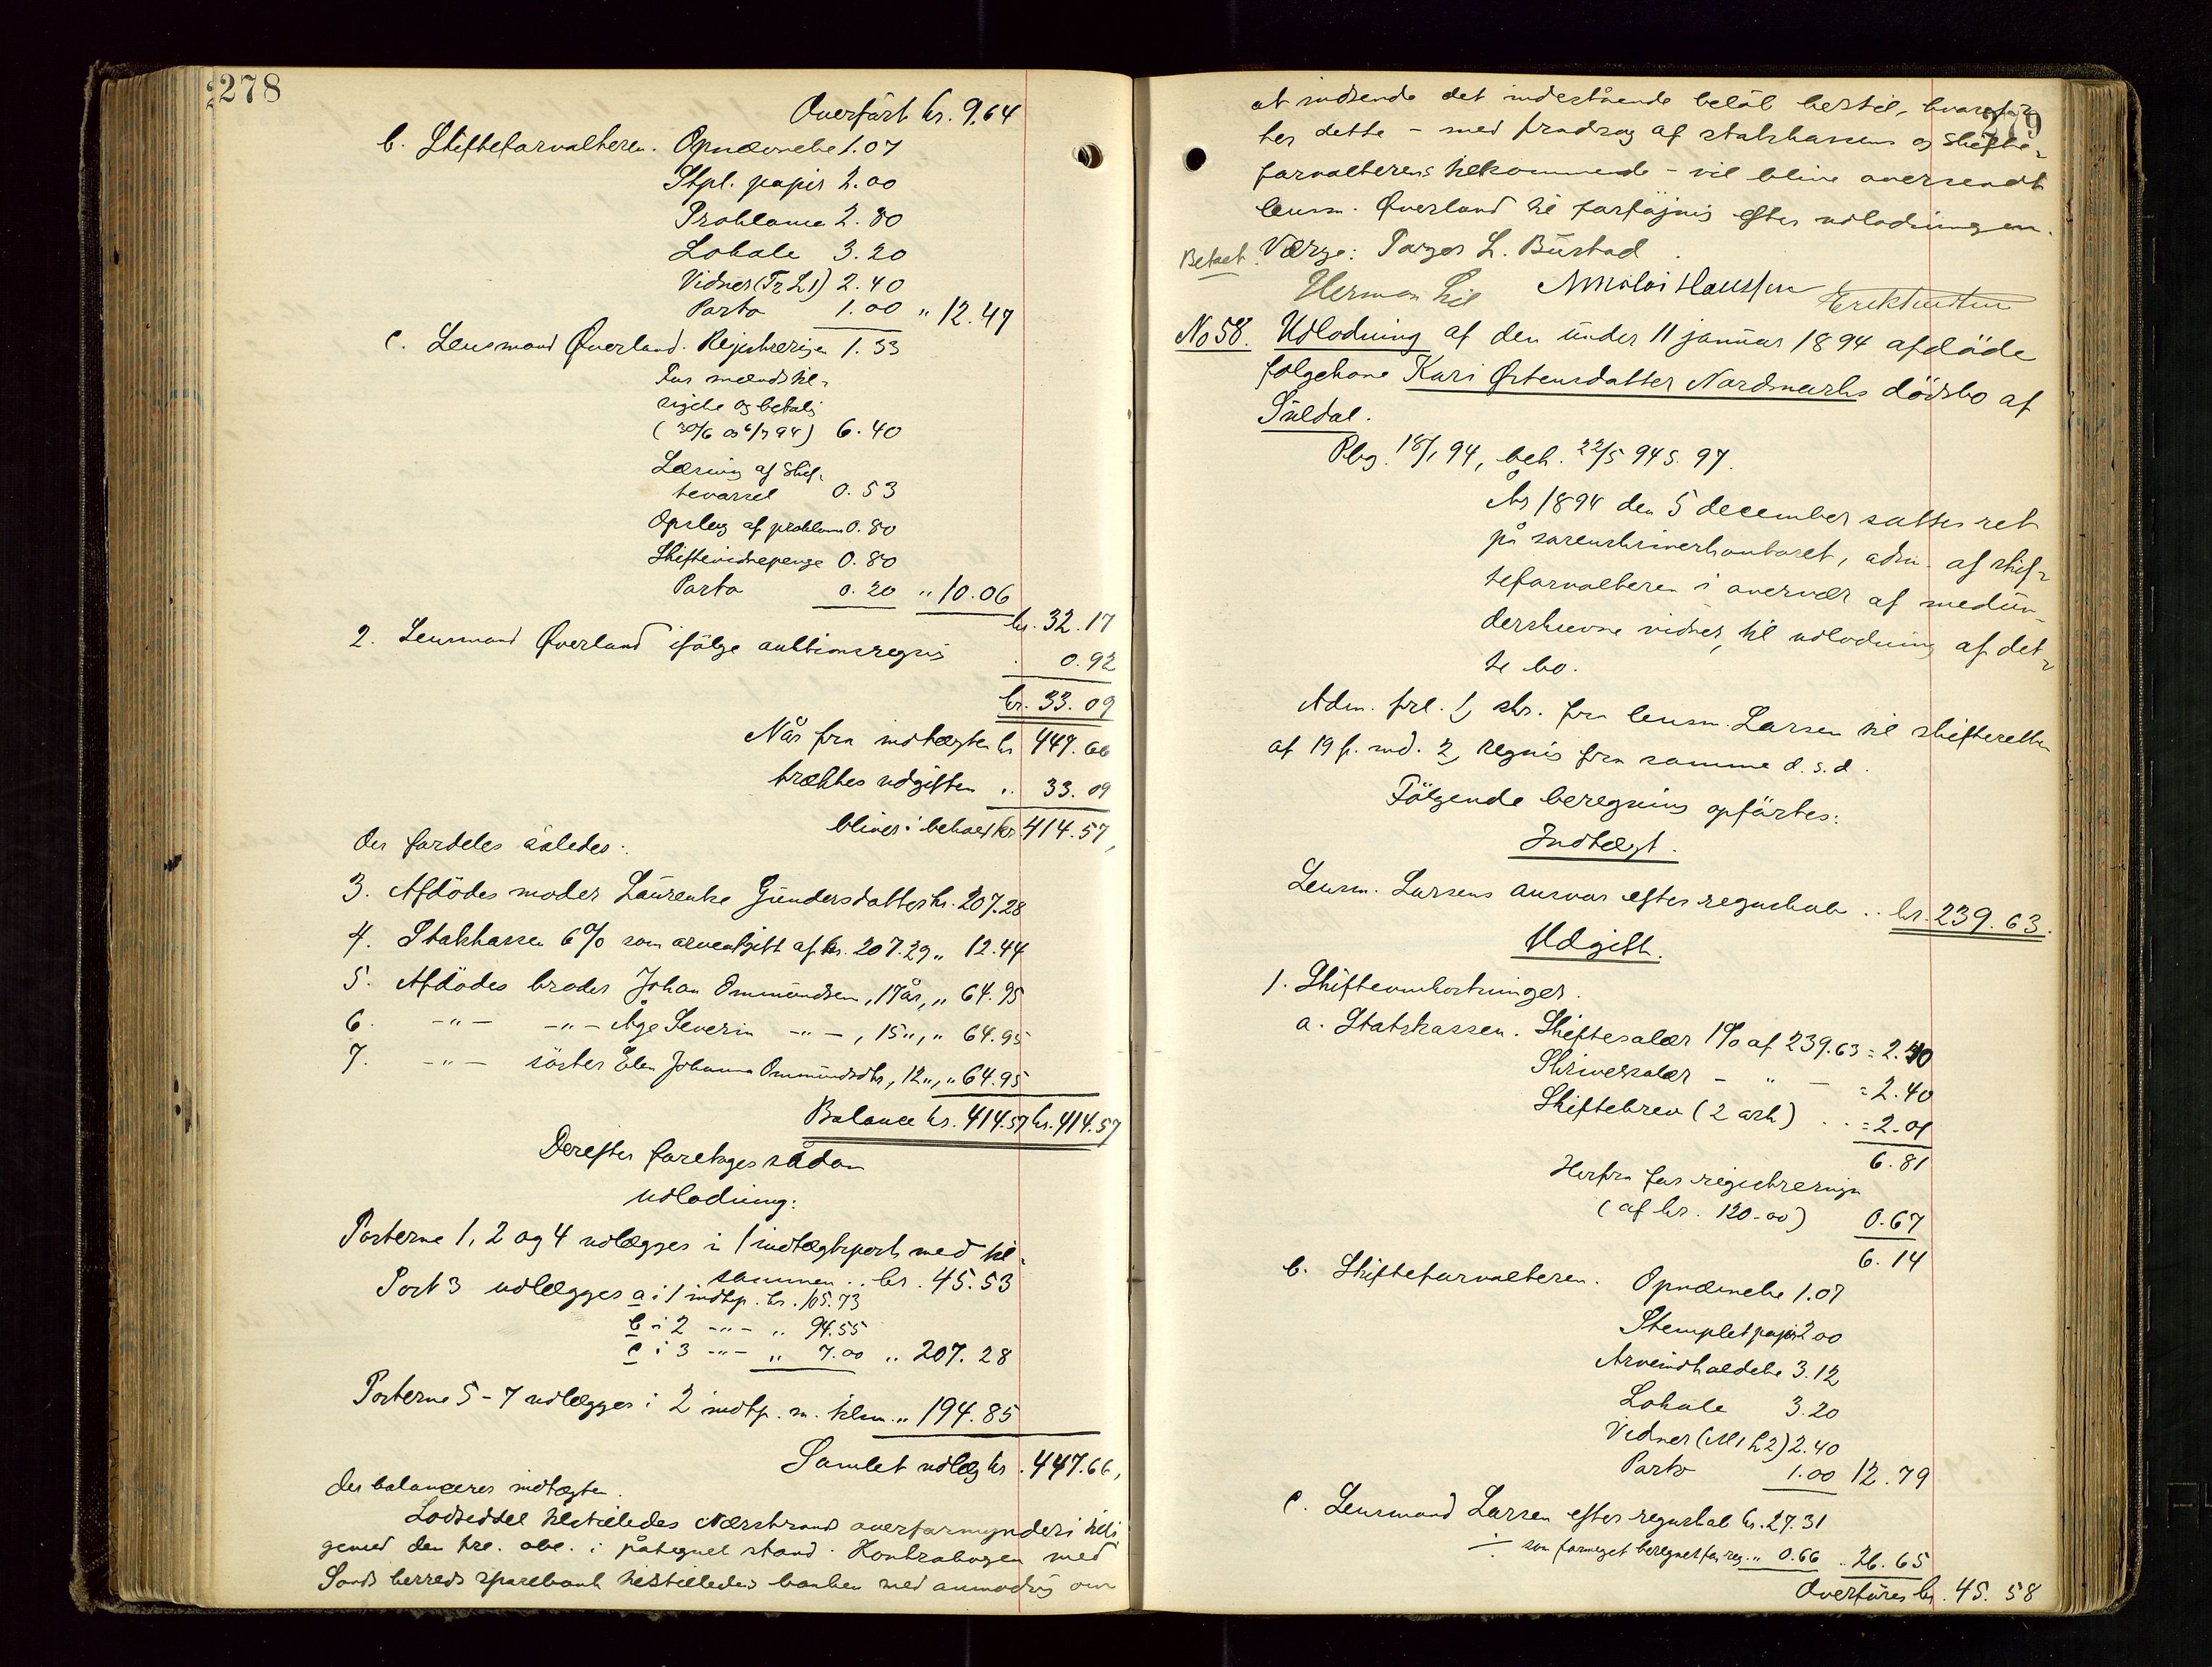 278
Overført kr. 9.64
b. Skifteforvalteren. Opnævnelse 1.07
Stpl. papir 2.00
Proklama 2.80
Lokale 3.20
Vidner (Tr L1) 2.40
Porto 1.00 " 12.47
c. Lensmand Øverland. Registrerigen 1.33
For mændstil-
sigelse og betalig
(30/6 og 6/7 94) 6.40
Læsning af skif-
tevarsel 0.53
Opslag af proklama 0.80
Skiftevidnepenge 0.80
Porto 0.20 " 10.06
kr. 32.17
2. Lensmand Øverland ifølge auktionsregnis 0.92
kr. 33.09
Når fra indtægten kr 447.66
trækkes udgiften " 33.09
bliver i behold kr 414.57,
der fordeles således:
3. Afdødes moder Laurentse Gundersdatter kr. 207.28
4. Statskassen 6% som arveafgift af kr. 207.29 " 12.44
5. Afdødes broder Johan Ommundsen, 17 år, " 64.95
6. -"- -"- Åge Severin -"-, 15 ", " 64.95
7. -"- søster Elen Johanna Ommundsdtr, 12 ", " 64.95
Balance kr. 414.57 kr. 414.57
Derefter foretoges sådan
udlodning:
Posterne 1, 2 og 4 udlægges i 1 indtægtspost med til-
sammen .. kr. 45.53
Post 3 udlægges a i 1 indtp. kr. 105.73
b i 2 -"- " 94.55
c i 3 -"- " 7.00 " 207.28
Posterne 5-7 udlægges i 2 indtp. m. tilsm. " 194.85
Samlet udlæg kr. 447.66,
der balancerer indtægten.
Lodseddel tilstilledes Nærstrand overformynderi tilli
gemed den tre. obl. i påtegnet stand. Kontrabogen med
Sands herreds sparebank tilstilledes banken med anmodnig om
279
at indsende det indestående beløb hertil, hvoref-
ter dette - med fradrag af statskassens og skifte-
forvalterens tilkommende - vil blive oversendt
lensm. Øverland til forføjnis efter udlodningen.
Betalt. Værge: Torger L. Bustad.
Herman Lie Nikolai Hausken Erik Knudsen
No 58. Udlodning af den under 11 januar 1894 afdøde
folgekone Kari Østensdatter Nordmarks dødsbo af
Suldal.
Pbg. 18/1 94, beh. 22/5 94 s. 97.
År 1894 den 5 december sattes ret
på sorenskriverkontoret, adm. af skif-
teforvalteren i overvær af medun-
derskrevne vidner, til udlodning af det-
te bo.
Adm. frl. 1, skr. fra lensm. Larsen til skifteretten
af 19 f. md. 2, regnis fra samme d. s. d.
Følgende beregning opførtes:
Indtægt.
Lensm. Larsens ansvar efter regnskab .. kr. 239.63.
Udgift.
1. Skifteomkostninger.
a. Statskassen. Skiftesalær 1% af 239.63 = 2.40
Skriversalær - " - = 2.40
Skiftebrev (2 ark) .. = 2.01
6.81
Herfra for registreringen
(af kr. 120.00) 0.67
6.14
b. Skifteforvalteren. Opnævnelse 1.07
Stemplet papir 2.00
Arveindkaldelse 3.12
Lokale 3.20
Vidner (M1 L2) 2.40
Porto 1.00 12.79
c. Lensmand Larsen efter regnskab kr. 27.31
÷ som formeget beregnet for reg. " 0.66 " 26.65
Overføres kr. 45.58